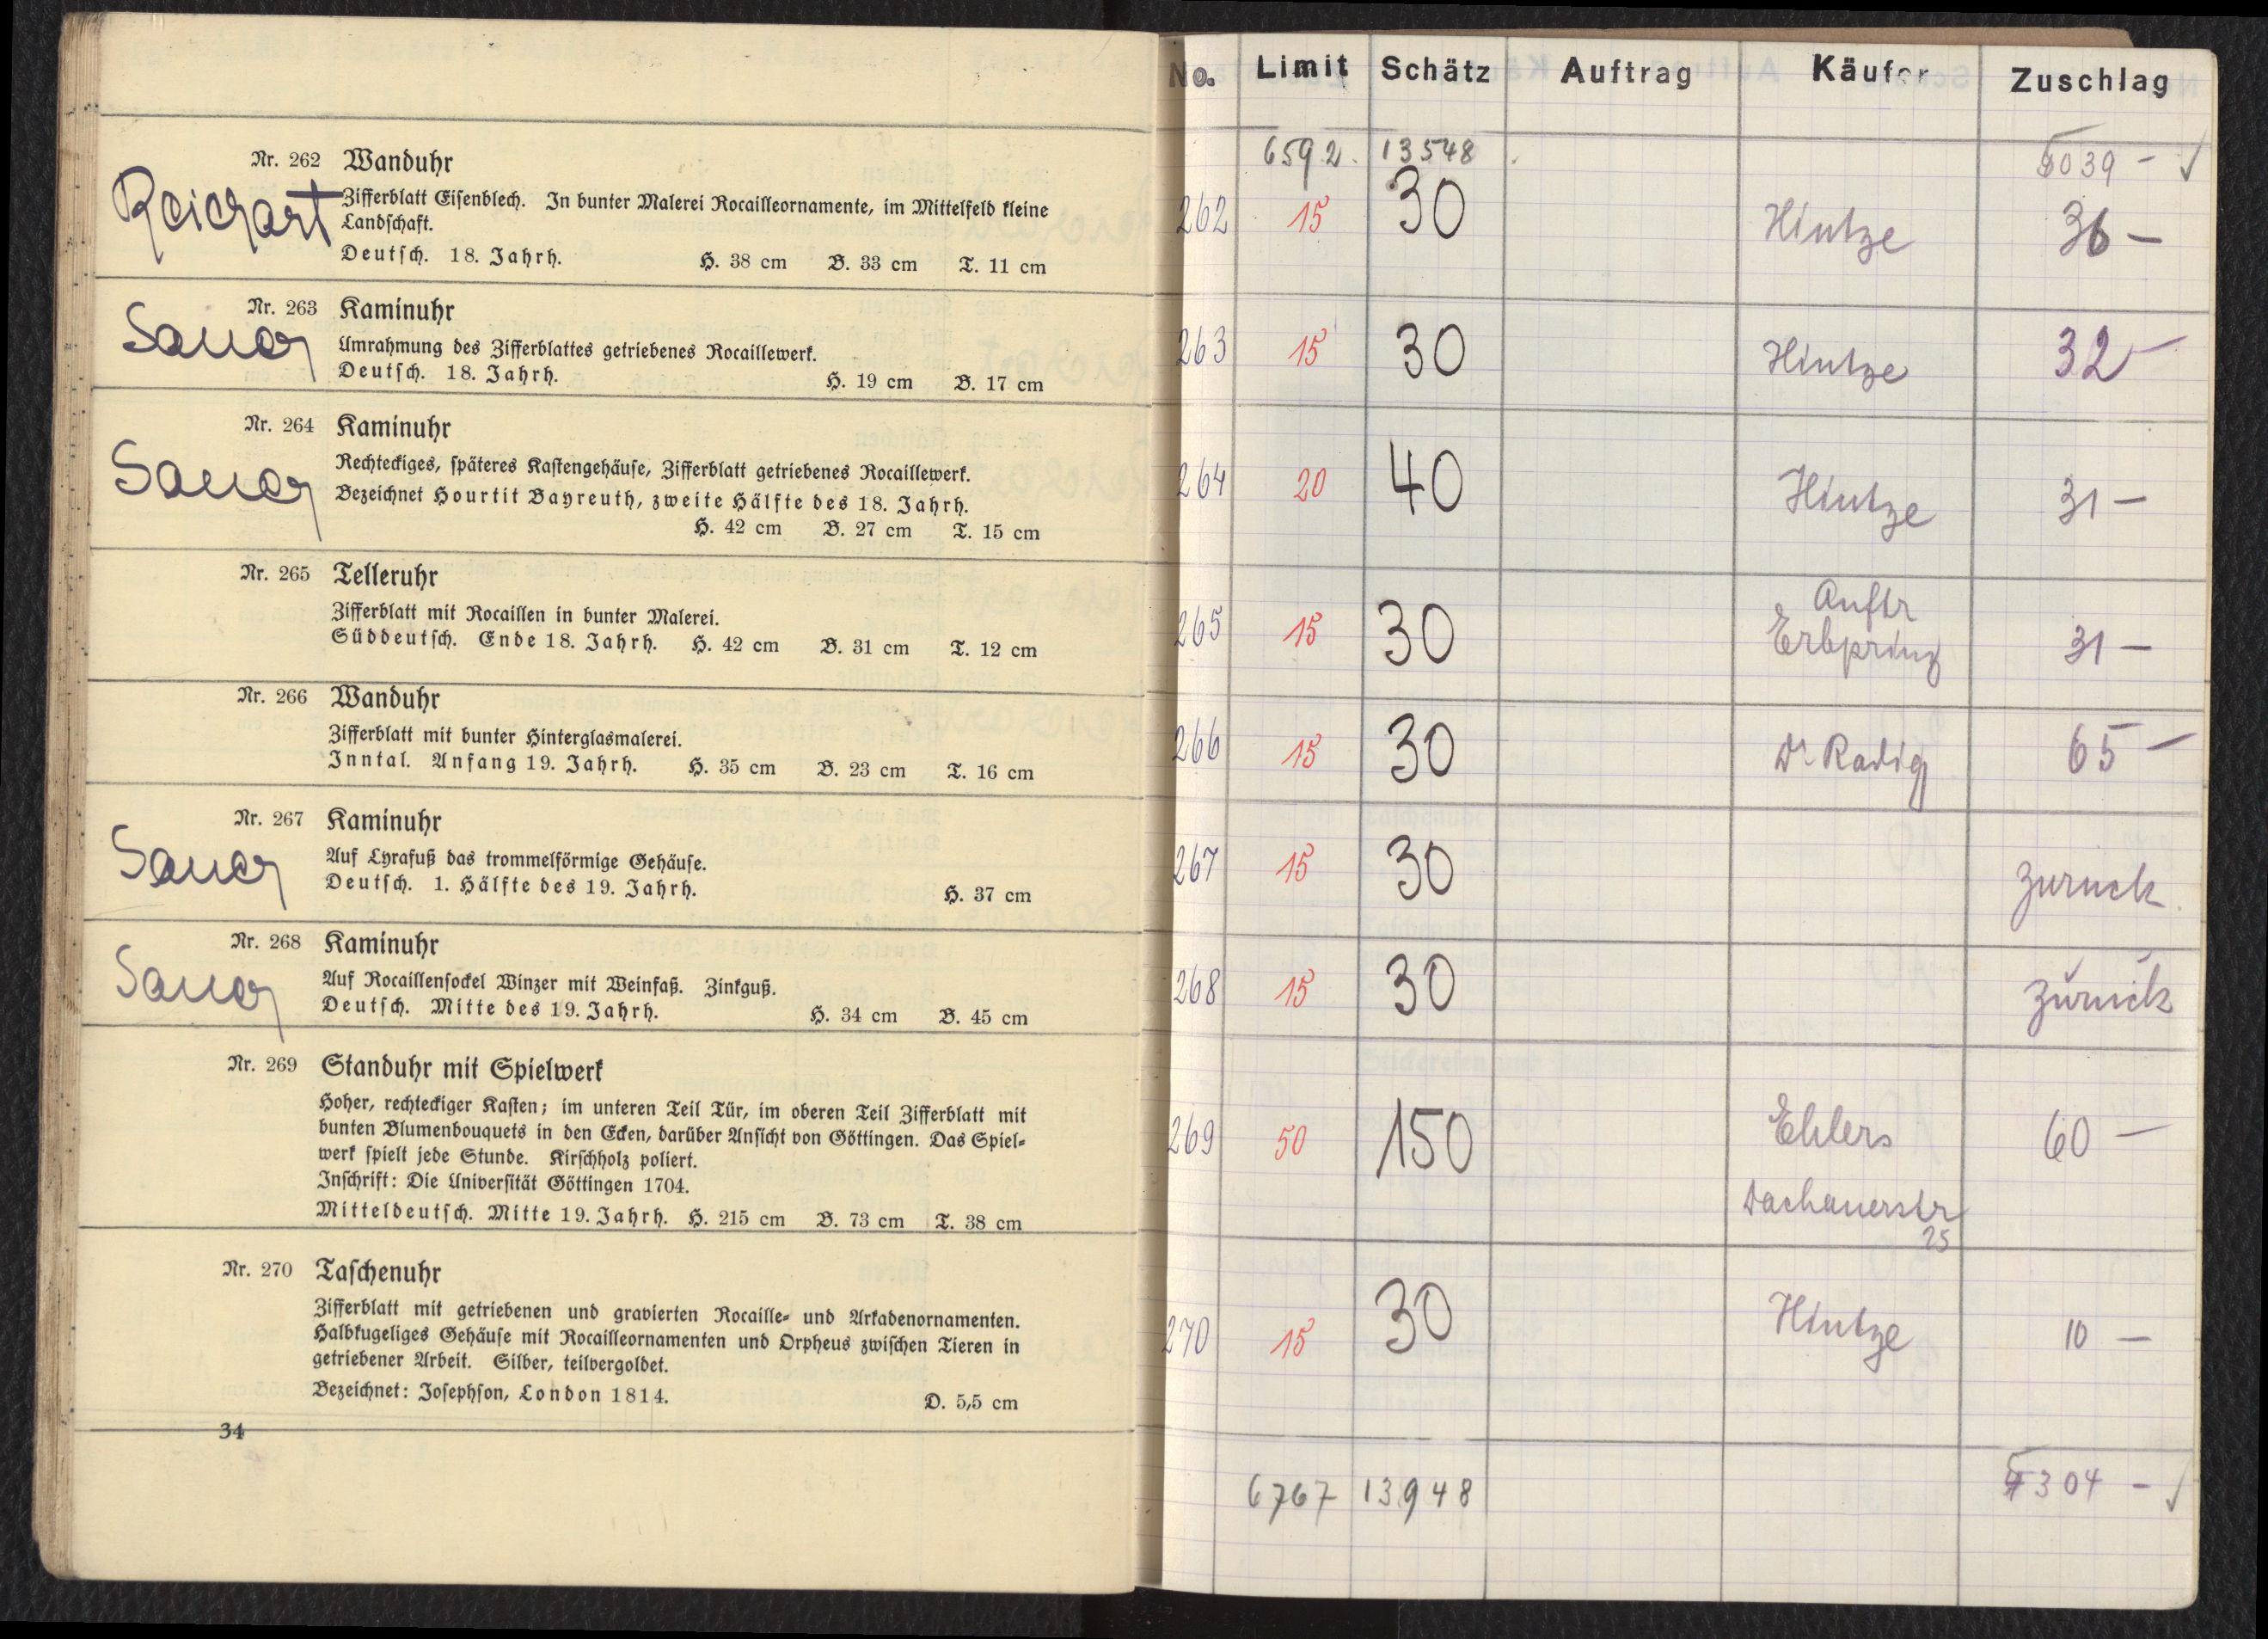 Nr. 262 Wanduhr
Reichart
Zifferblatt Eisenblech. In bunter Malerei Rocailleornamente, im Mittelfeld kleine
Landschaft.
Deutsch. 18. Jahrh. H. 38 cm B. 33 cm T. 11 cm
Nr. 263 Kaminuhr
Sauer
Umrahmung des Zifferblattes getriebenes Rocaillewerk.
Deutsch. 18. Jahrh. H. 19 cm B. 17 cm
Nr. 264 Kaminuhr
Sauer
Rechteckiges, späteres Kastengehäuse, Zifferblatt getriebenes Rocaillewerk.
Bezeichnet Hourtit Bayreuth, zweite Hälfte des 18. Jahrh.
H. 42 cm B. 27 cm T. 15 cm
Nr. 265 Telleruhr
Zifferblatt mit Rocaillen in bunter Malerei.
Süddeutsch. Ende 18. Jahrh. H. 42 cm B. 31 cm T. 12 cm
Nr. 266 Wanduhr
Zifferblatt mit bunter Hinterglasmalerei.
Inntal. Anfang 19. Jahrh. H. 35 cm B. 23 cm T. 16 cm
Nr. 267 Kaminuhr
Sauer
Auf Lyrafuß das trommelförmige Gehäuse.
Deutsch. 1. Hälfte des 19. Jahrh. H. 37 cm
Nr. 268 Kaminuhr
Sauer
Auf Rocaillensockel Winzer mit Weinfaß. Zinkguß.
Deutsch. Mitte des 19. Jahrh. H. 34 cm B. 45 cm
Nr. 269 Standuhr mit Spielwerk
Hoher, rechteckiger Kasten; im unteren Teil Tür, im oberen Teil Zifferblatt mit
bunten Blumenbouquets in den Ecken, darüber Ansicht von Göttingen. Das Spiel-
werk spielt jede Stunde. Kirschholz poliert.
Inschrift: Die Universität Göttingen 1704.
Mitteldeutsch. Mitte 19. Jahrh. H. 215 cm B. 73 cm T. 38 cm
Nr. 270 Taschenuhr
Zifferblatt mit getriebenen und gravierten Rocaille- und Arkadenornamenten.
Halbkugeliges Gehäuse mit Rocailleornamenten und Orpheus zwischen Tieren in
getriebener Arbeit. Silber, teilvergoldet.
Bezeichnet: Josephson, London 1814. D. 5,5 cm
34
No. Limit Schätz Auftrag Käufer Zuschlag
6592. 13548 5039 – ✓
262 15 30 Hintze 36 –
263 15 30 Hintze 32 –
264 20 40 Hintze 31 –
265 15 30 Auftr
Erbprinz 31 –
266 15 30 Dr. Radig 65 –
267 15 30 zurück
268 15 30 zurück
269 50 150 Ehlers 60 –
Dachauerstr
25
270 15 30 Hintze 10 –
6767 13948 5304 – ✓